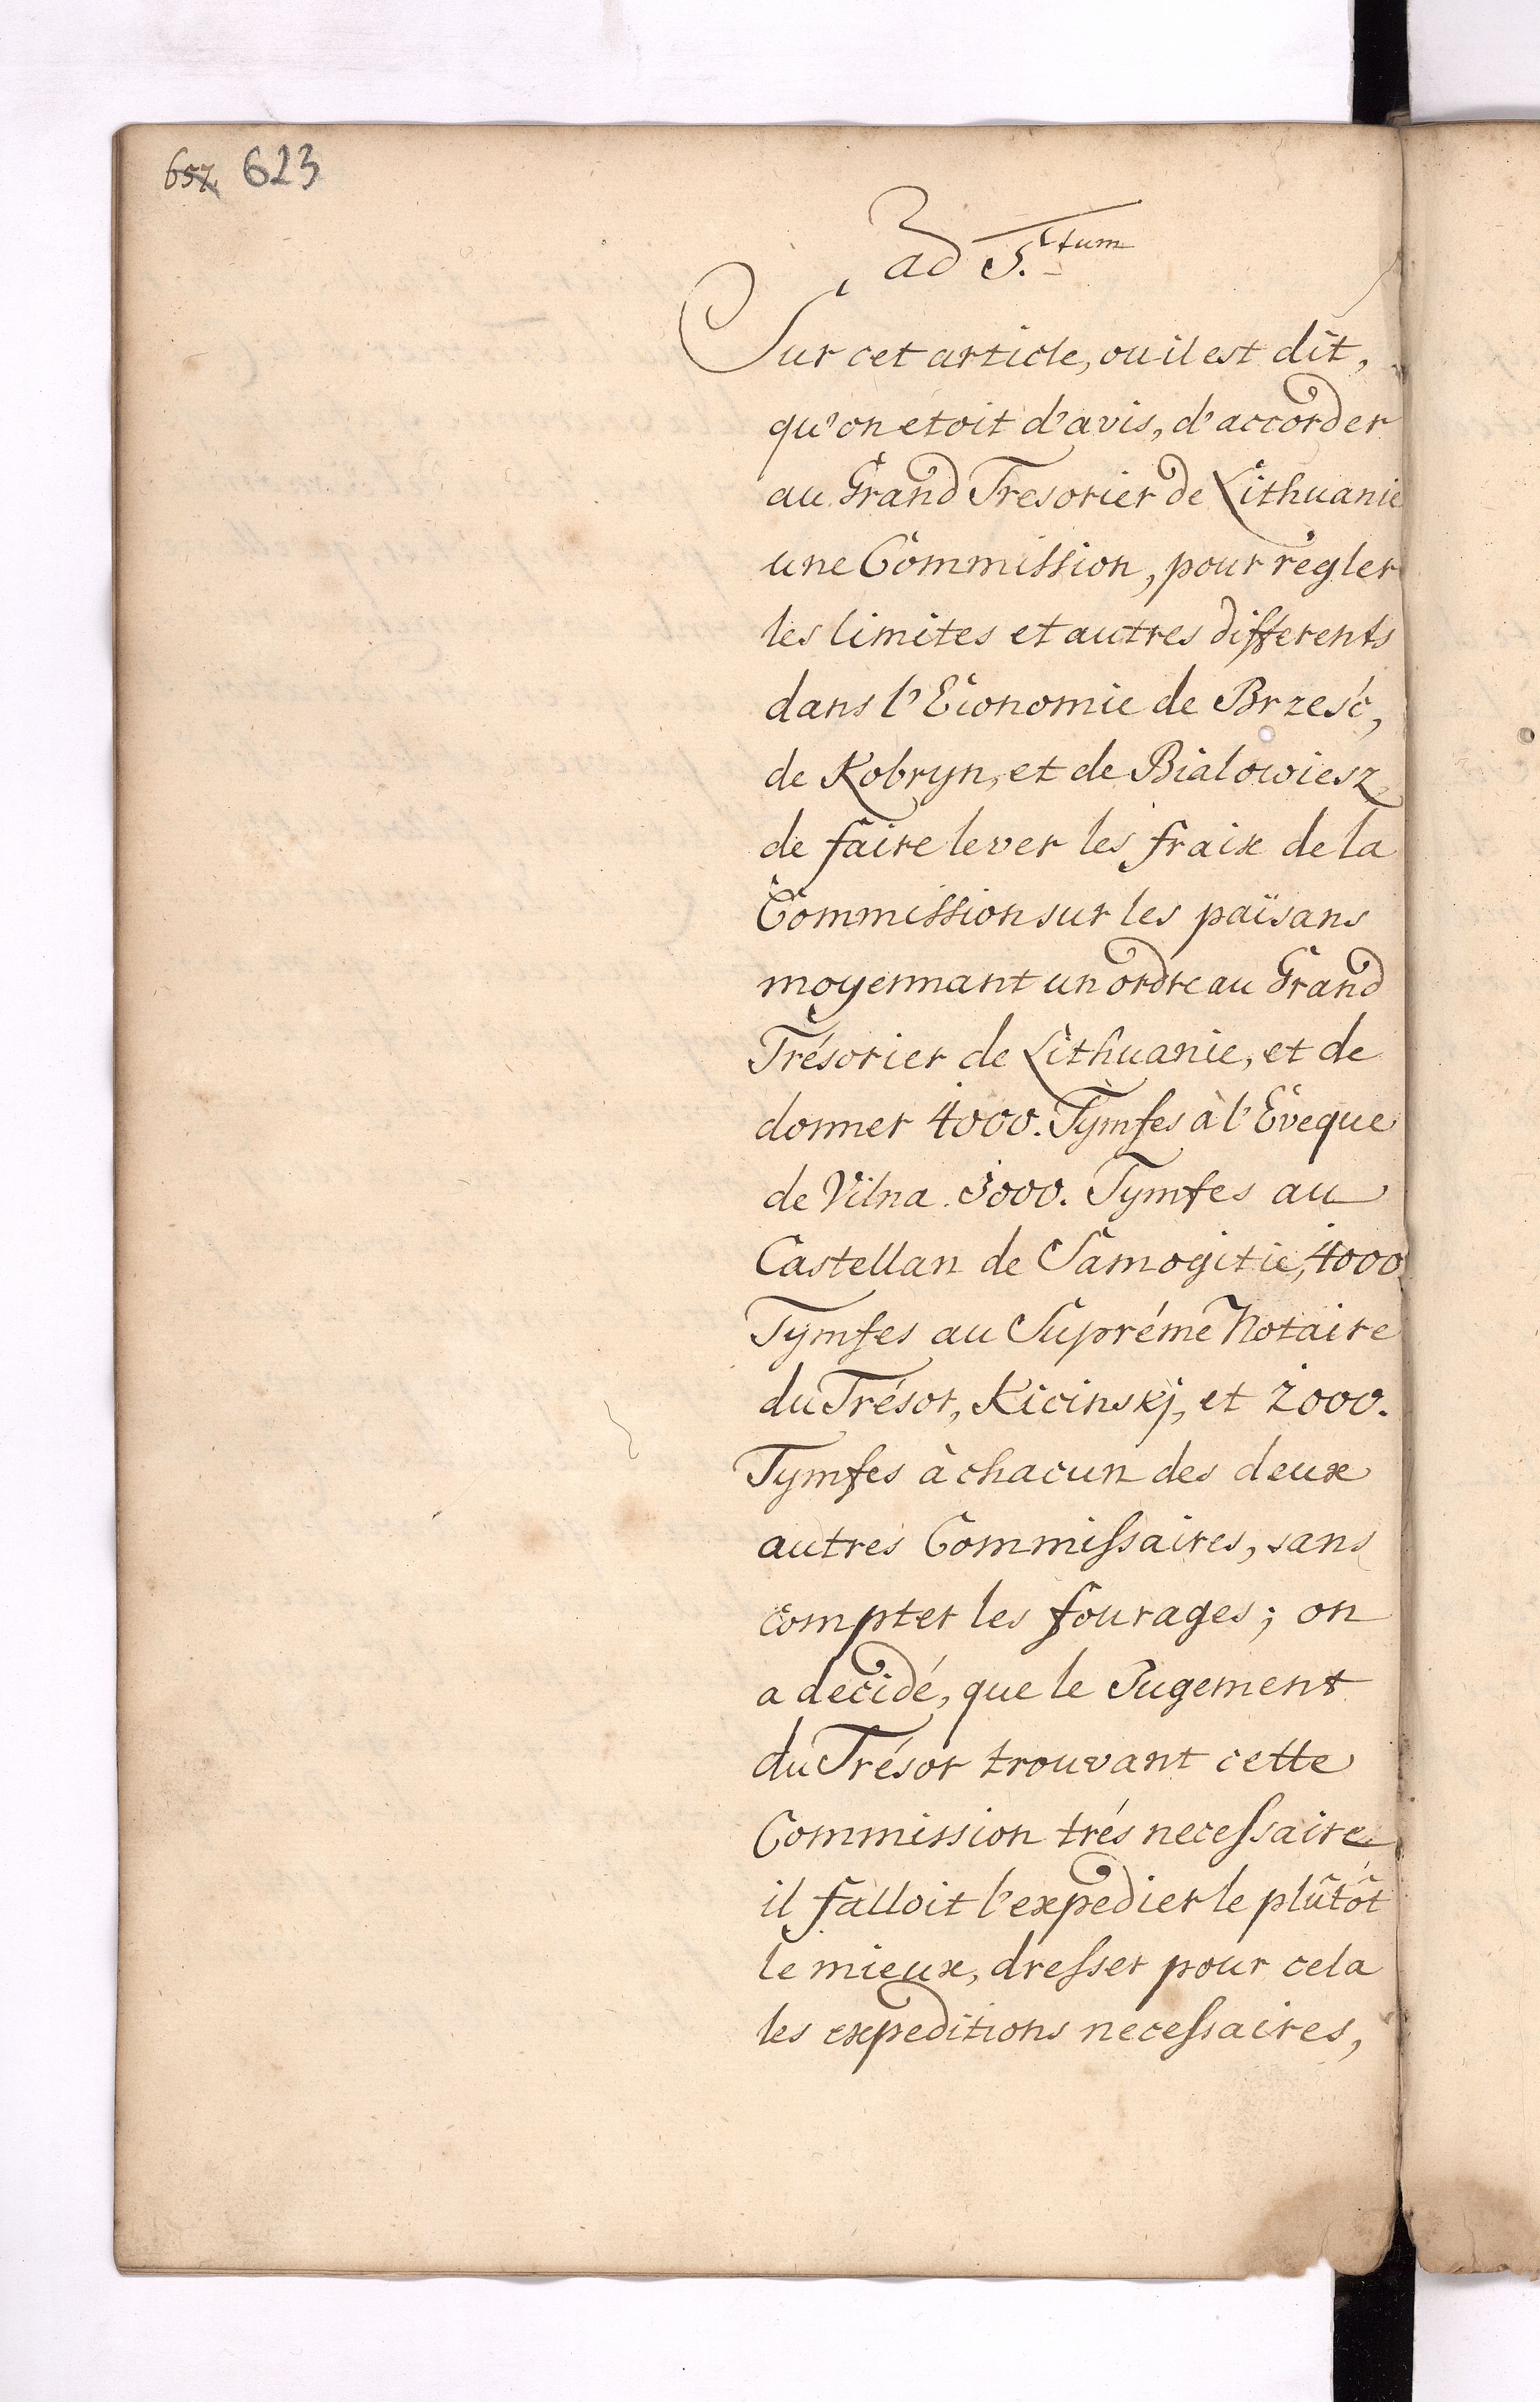 657. 623
ad 5.tum
Sur cet article, ou il est dit,
qu'on etoit d'avis, d'accorder
au Grand Tresorier de Lithuanie
une Commission, pour regler
les limites et autres differents
dans l'Economie de Brzesć,
de Kobryn, et de Bialowiesz
de faire lever les fraix de la
Commission sur les païsans
moyennant un ordre au Grand
Trésorier de Lithuanie, et de
donner 4000. Tymfes à l'Eveque
de Vilna 3000. Tymfes au
Castellan de Samogitie, 4000
Tymfes au Supréme Notaire
du Trésor, Kicinskj, et 2000.
Tymfes à chacun des deux
autres Commissaires, sans
compter les fourages; on
a decidé, que le Jugement
du Trésor trouvant cette
Commission trés necessaire
il falloit l'expedier le plûtôt
le mieux, dresser pour cela
les expeditions necessaires,